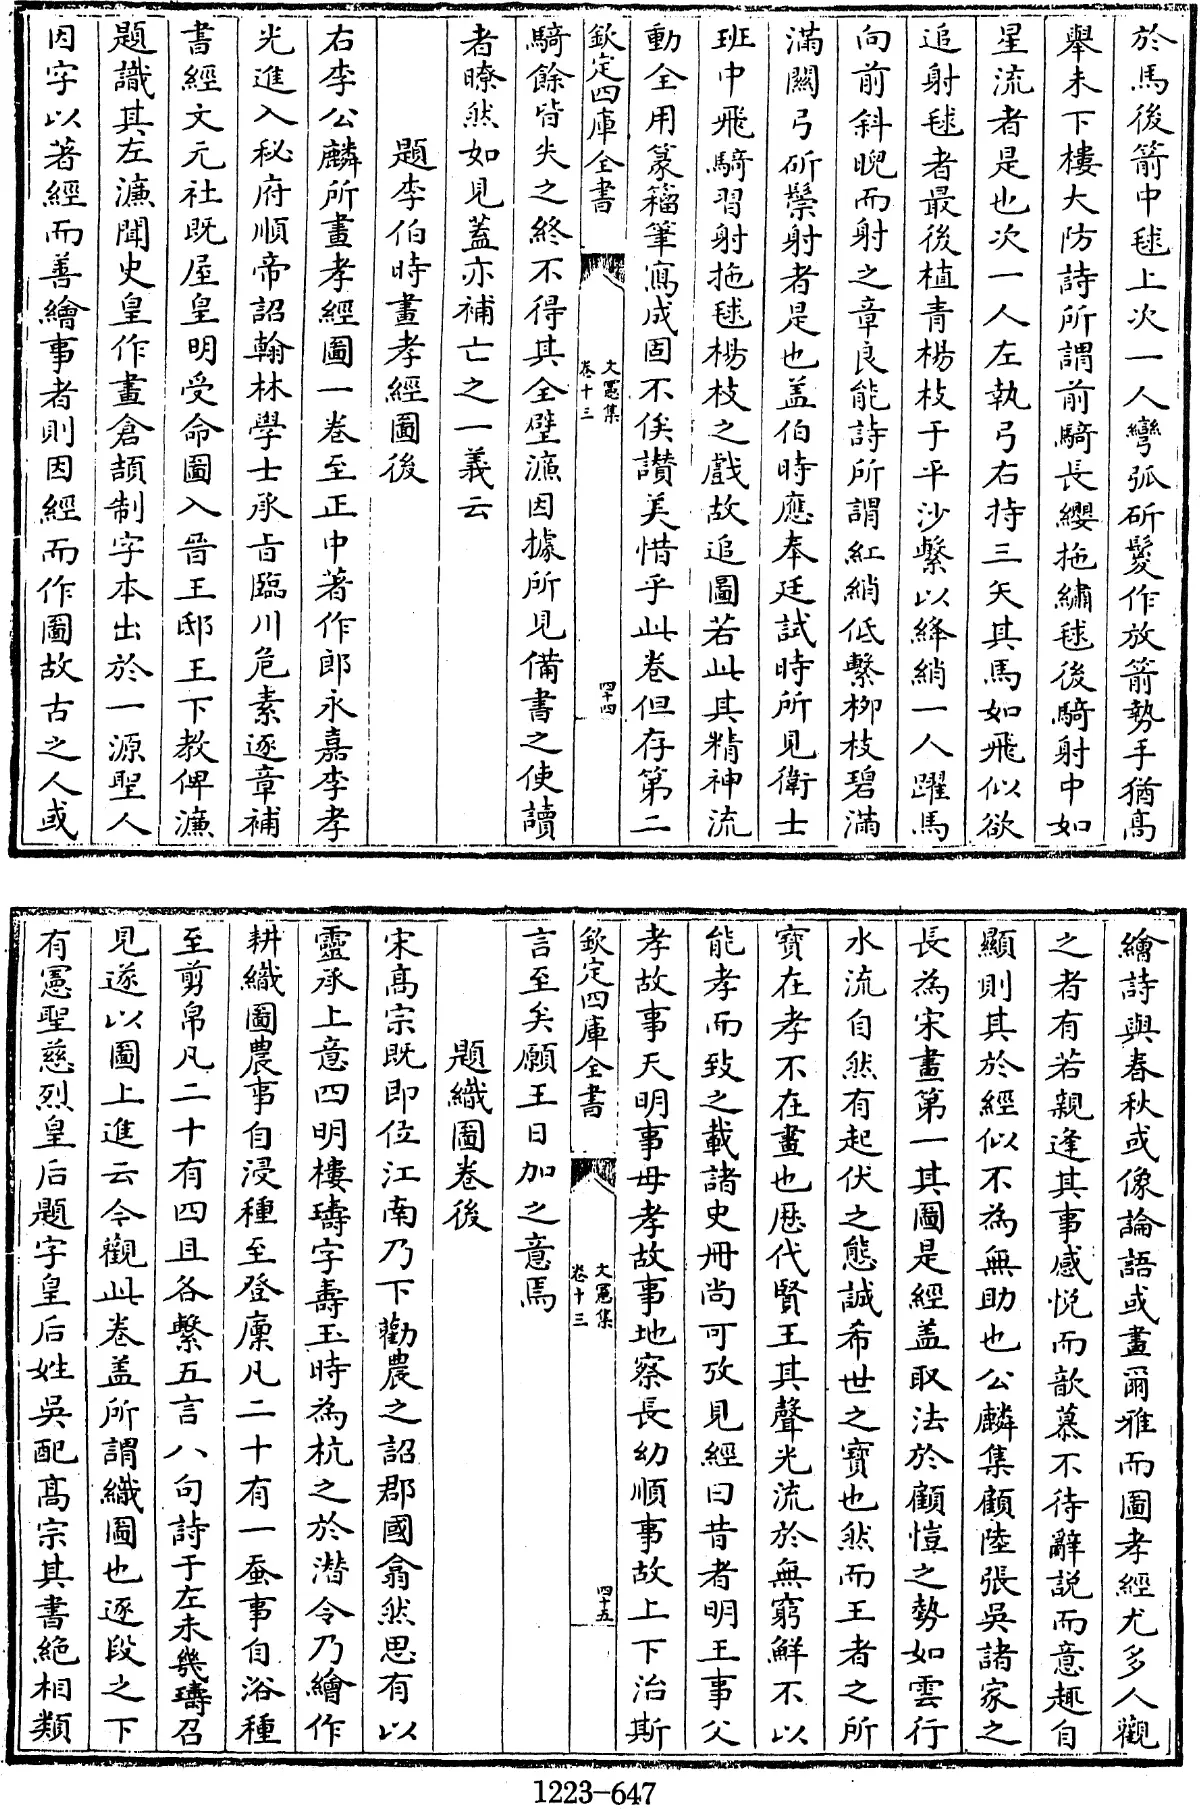 於馬後箭中毬上次一人彎弧斫鬉作放箭勢手猶髙
舉未下樓大防詩所謂前騎長纓拖繡毬後騎射中如
星流者是也次一人左執弓右持三矢其馬如飛似欲
追射毬者最後植青楊枝于平沙繫以絳綃一人躍馬
向前斜睨而射之章良能詩所謂紅綃低繫柳枝碧滿
滿闗弓斫鬃射者是也盖伯時應奉廷試時所見衛士
班中飛騎習射拖毬楊枝之戲故追圖若此其精神流
動全用篆籀筆寫成固不俟讃美惜乎此卷但存第二
欽定四庫全書
文憲集
卷十三
四十四
騎餘皆失之終不得其全璧濂因據所見備書之使讀
者瞭然如見蓋亦補亡之一義云
題李伯時畫孝經圖後
右李公麟所畫孝經圖一卷至正中著作郎永嘉李孝
光進入秘府順帝詔翰林學士承㫖臨川危素逐章補
書經文元社既屋皇明受命圖入晉王邸王下教俾濂
題識其左濂聞史皇作畫倉頡制字本出於一源聖人
因字以著經而善繪事者則因經而作圖故古之人或
繪詩與春秋或像論語或畫爾雅而圖孝經尤多人觀
之者有若親逢其事感悦而歆慕不待辭説而意趣自
顯則其於經似不為無助也公麟集顧陸張吳諸家之
長為宋畫第一其圖是經盖取法於顧愷之勢如雲行
水流自然有起伏之態誠希世之寶也然而王者之所
寶在孝不在畫也歴代賢王其聲光流於無窮鮮不以
能孝而致之載諸史冊尚可攷見經曰昔者明王事父
孝故事天明事母孝故事地察長幼順事故上下治斯
欽定四庫全書
文憲集
卷十三
四十五
言至矣願王日加之意焉
題織圖卷後
宋髙宗既即位江南乃下勸農之詔郡國翕然思有以
靈承上意四明樓璹字壽玉時為杭之於潛令乃繪作
耕織圖農事自浸種至登廩凡二十有一蚕事自浴種
至剪帛凡二十有四且各繫五言八句詩于左未幾璹召
見遂以圖上進云今觀此卷盖所謂織圖也逐段之下
有憲聖慈烈皇后題字皇后姓吳配髙宗其書絶相類
1223-647